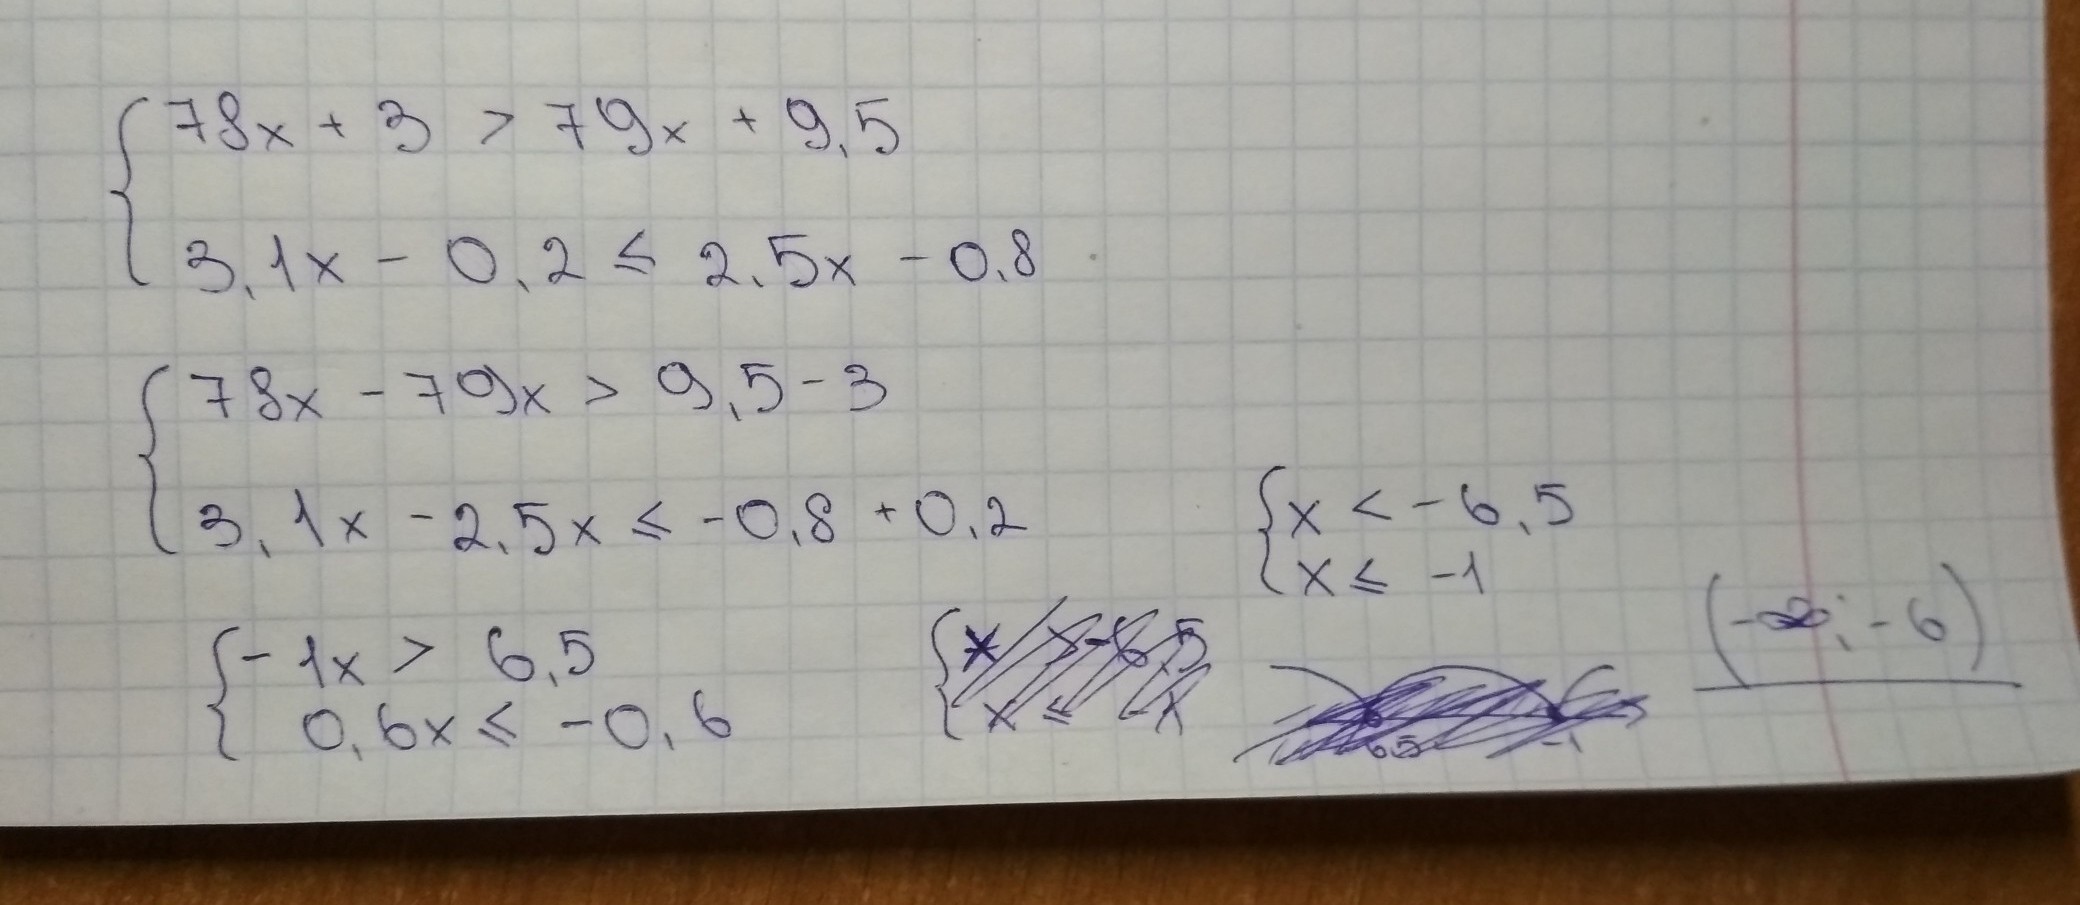 78x + 3 > 79x + 9,5
3,1x - 0,2 ≤ 2,5x - 0,8
78x - 79x > 9,5 - 3
3,1x - 2,5x ≤ -0,8 + 0,2
-1x > 6,5
0,6x ≤ -0,6
x < -6,5
x ≤ -1
(-∞; -6)